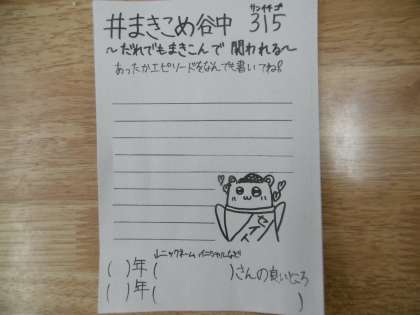 サンイチゴ
#まきこめ谷中 315
～だれでもまきこんで関われる～
あったかエピソードをなんでも書いてね!
セイト
↓ニックネーム イニシャルなど
( )年( )さんの良いところ
( )年( )